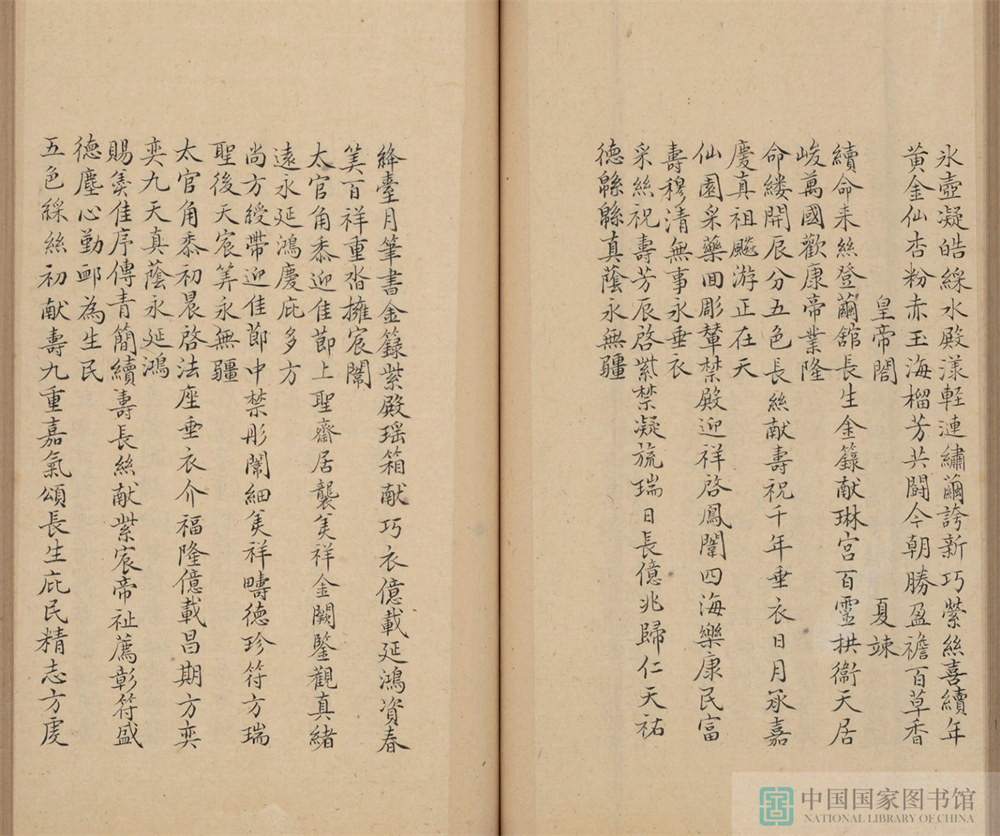 氷壺凝皓綵水殿漾輕漣繡繭誇新巧縈絲喜續年
黃金仙杏粉赤玉海榴芳共鬪今朝勝盈襜百草香
皇帝閤 夏竦
續命耒絲登繭舘長生金籙献琳宫百靈拱衞天居
峻萬國歡康帝業隆
命縷開辰分五色長絲献壽祝千年垂衣日月承嘉
慶真祖飈游正在天
仙園采藥回彫輦禁殿迎祥啓鳳闈四海樂康民富
壽穆清無事永垂衣
采絲祝壽芳辰啓紫禁凝旒瑞日長億兆歸仁天祐
德緜緜真蔭永無疆
絳臺月筆書金籙紫殿瑶箱献巧衣億載延鴻資春
筭百祥重沓擁宸闈
太官角黍迎佳莭上聖齋居襲美祥金闕鑒觀真緒
遠永延鴻慶庇多方
尚方綬帶迎佳莭中禁彤闈細美祥疇德珍符方瑞
聖後天宸筭永無疆
太官角黍初晨啓法座垂衣介福隆億載昌期方奕
奕九天真蔭永延鴻
賜羹佳序傳青簡續壽長絲献紫宸帝祉薦彰符盛
德塵心勤卹為生民
五色綵絲初献壽九重嘉氣頌長生庇民精志方虔
中国国家图书馆
NATIONAL LIBRARY OF CHINA